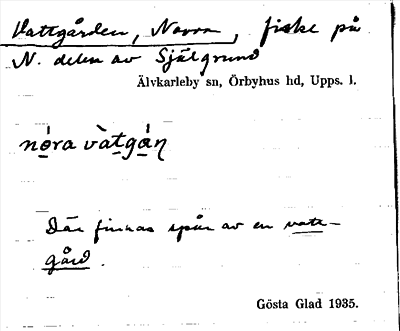 Vattgården, Norra, fiske på
N. delen av Själgrund
Älvkarleby sn, Örbyhus hd, Upps. l.
nó̱ra và̱tgá̱ṇ
Där finnas spår av en vatt-
gård.
Gösta Glad 1935.